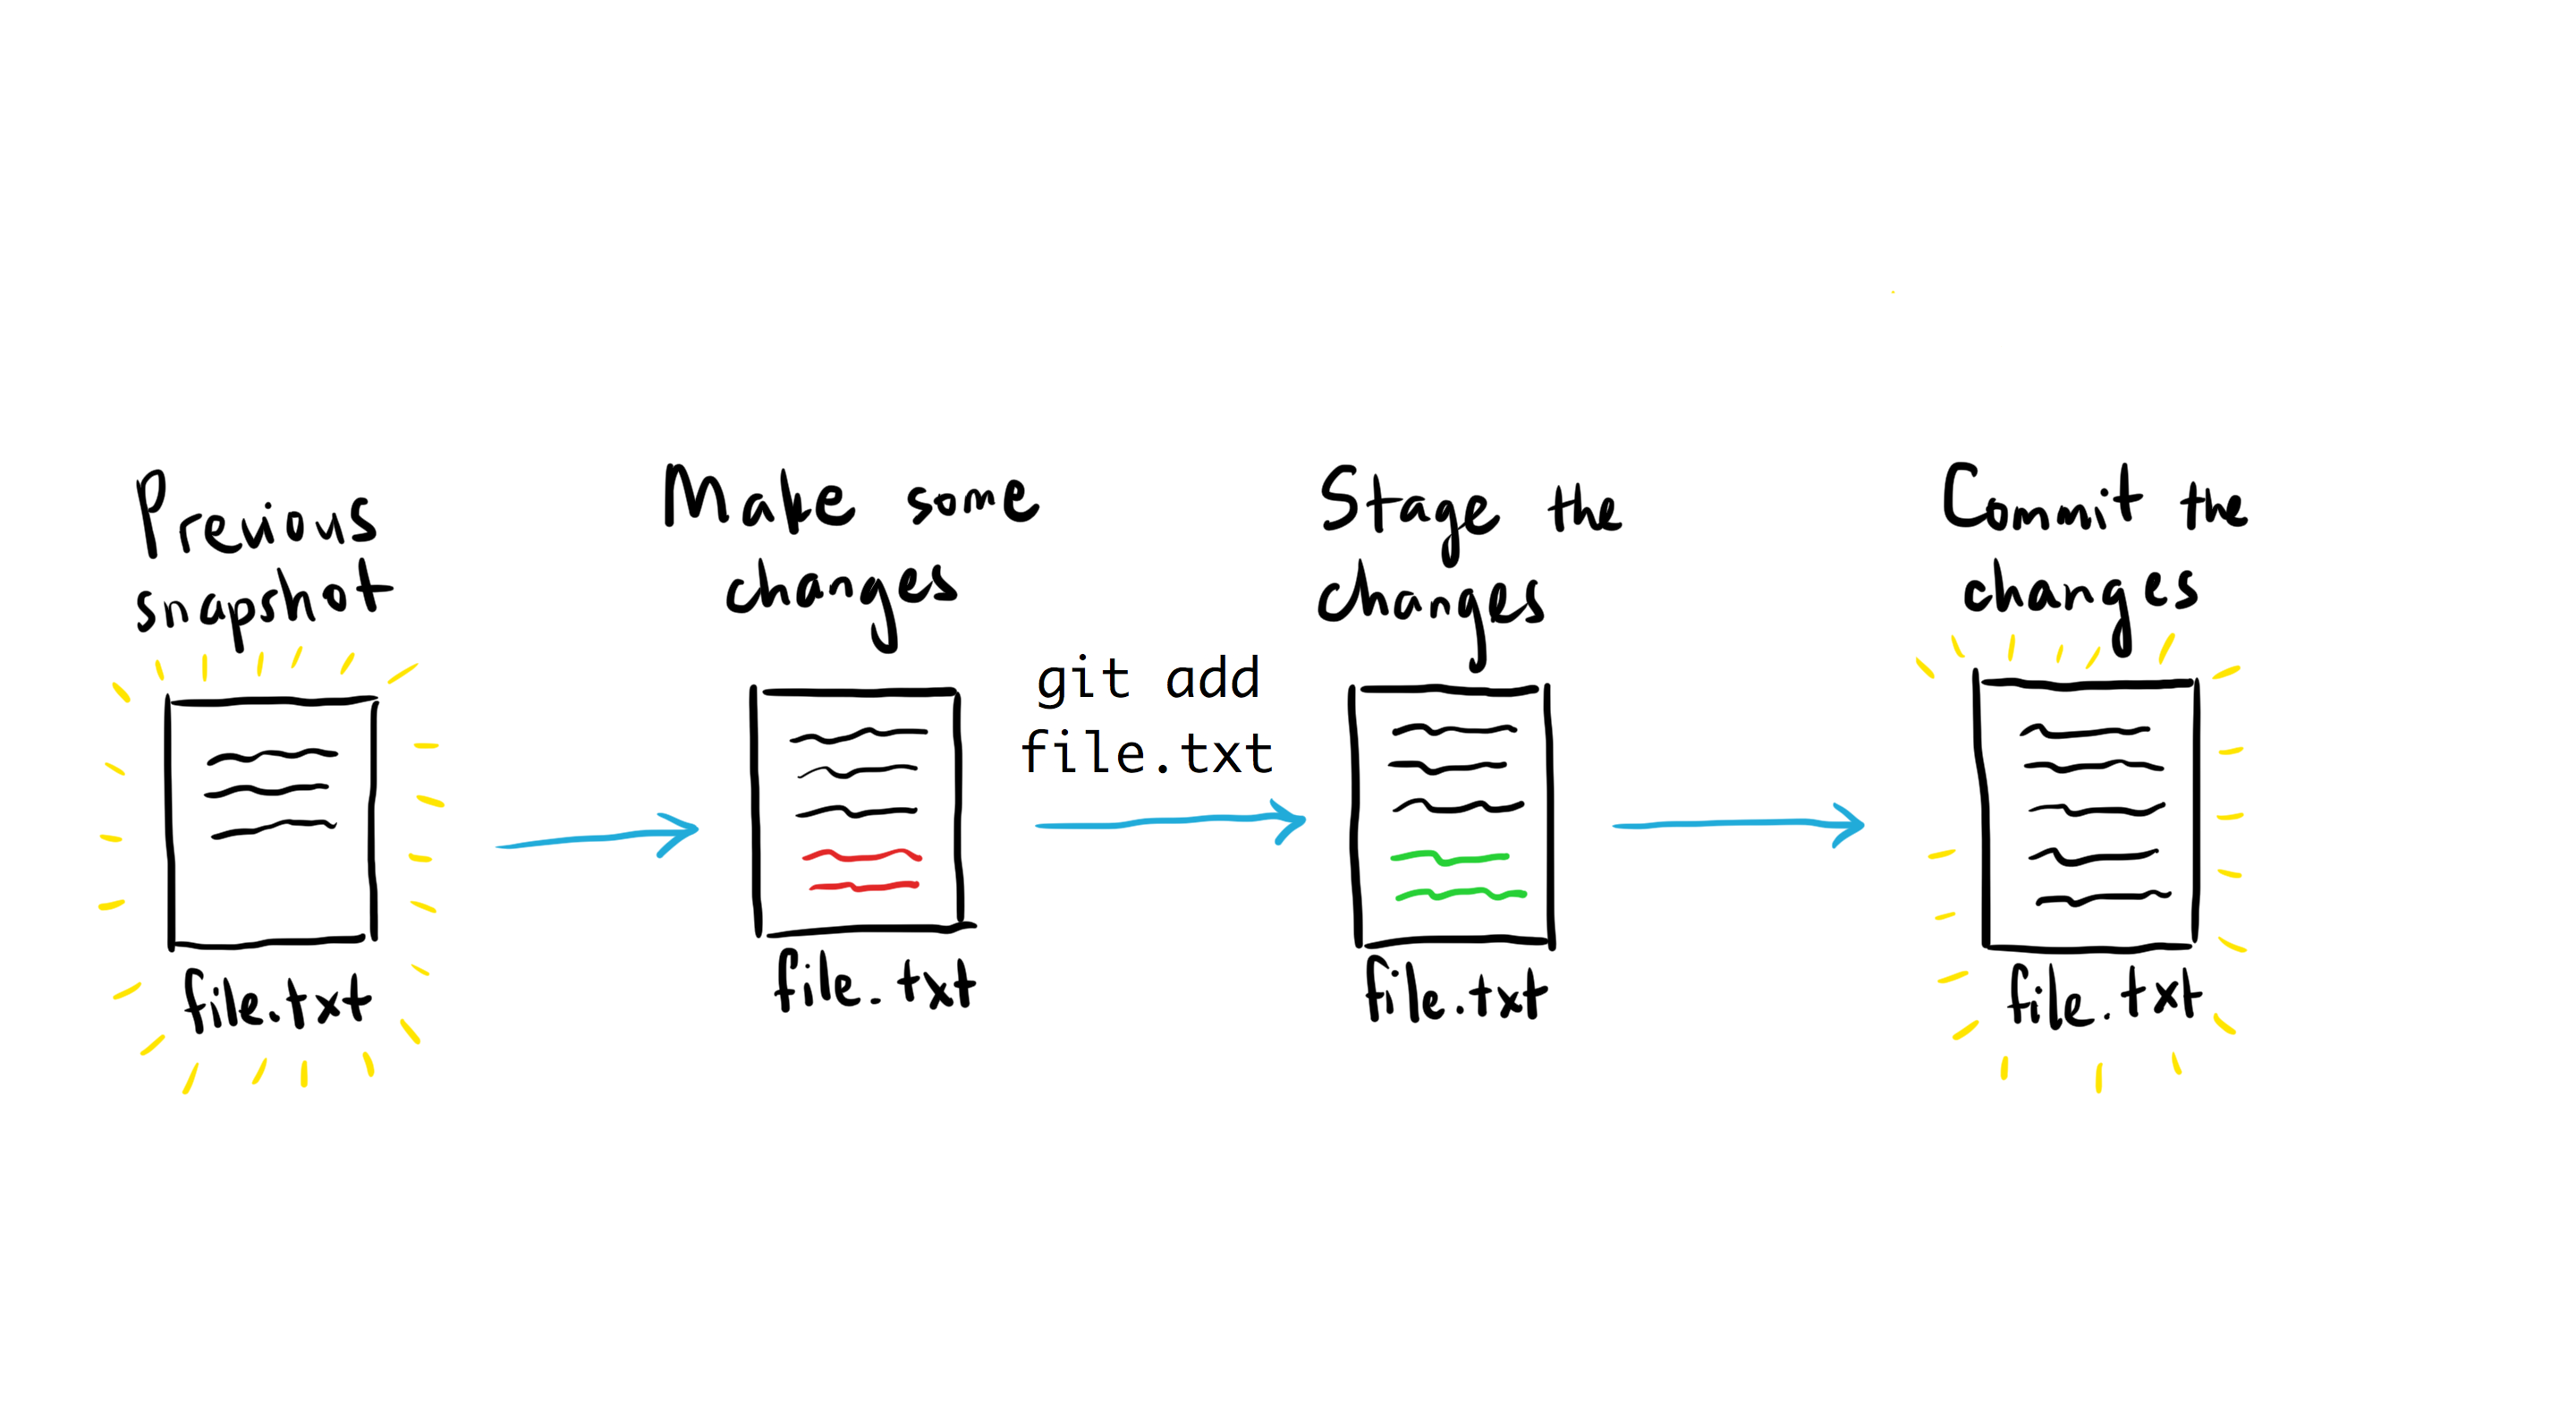 Previous
snapshot
file.txt
Make some
changes
file.txt
git add
file.txt
Stage the
changes
file.txt
Commit the
changes
file.txt